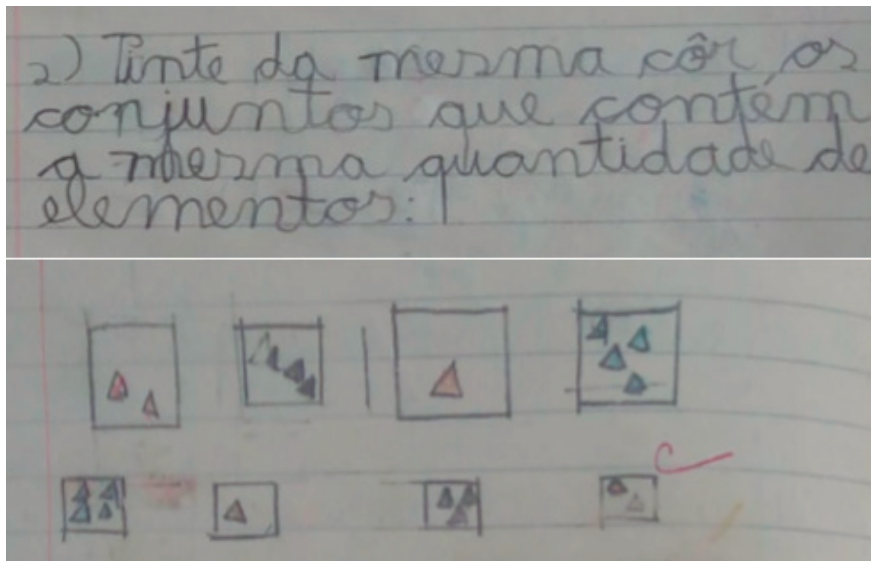 2) Tinte da mesma côr, os
conjuntos que contém
a mesma quantidade de
elementos: